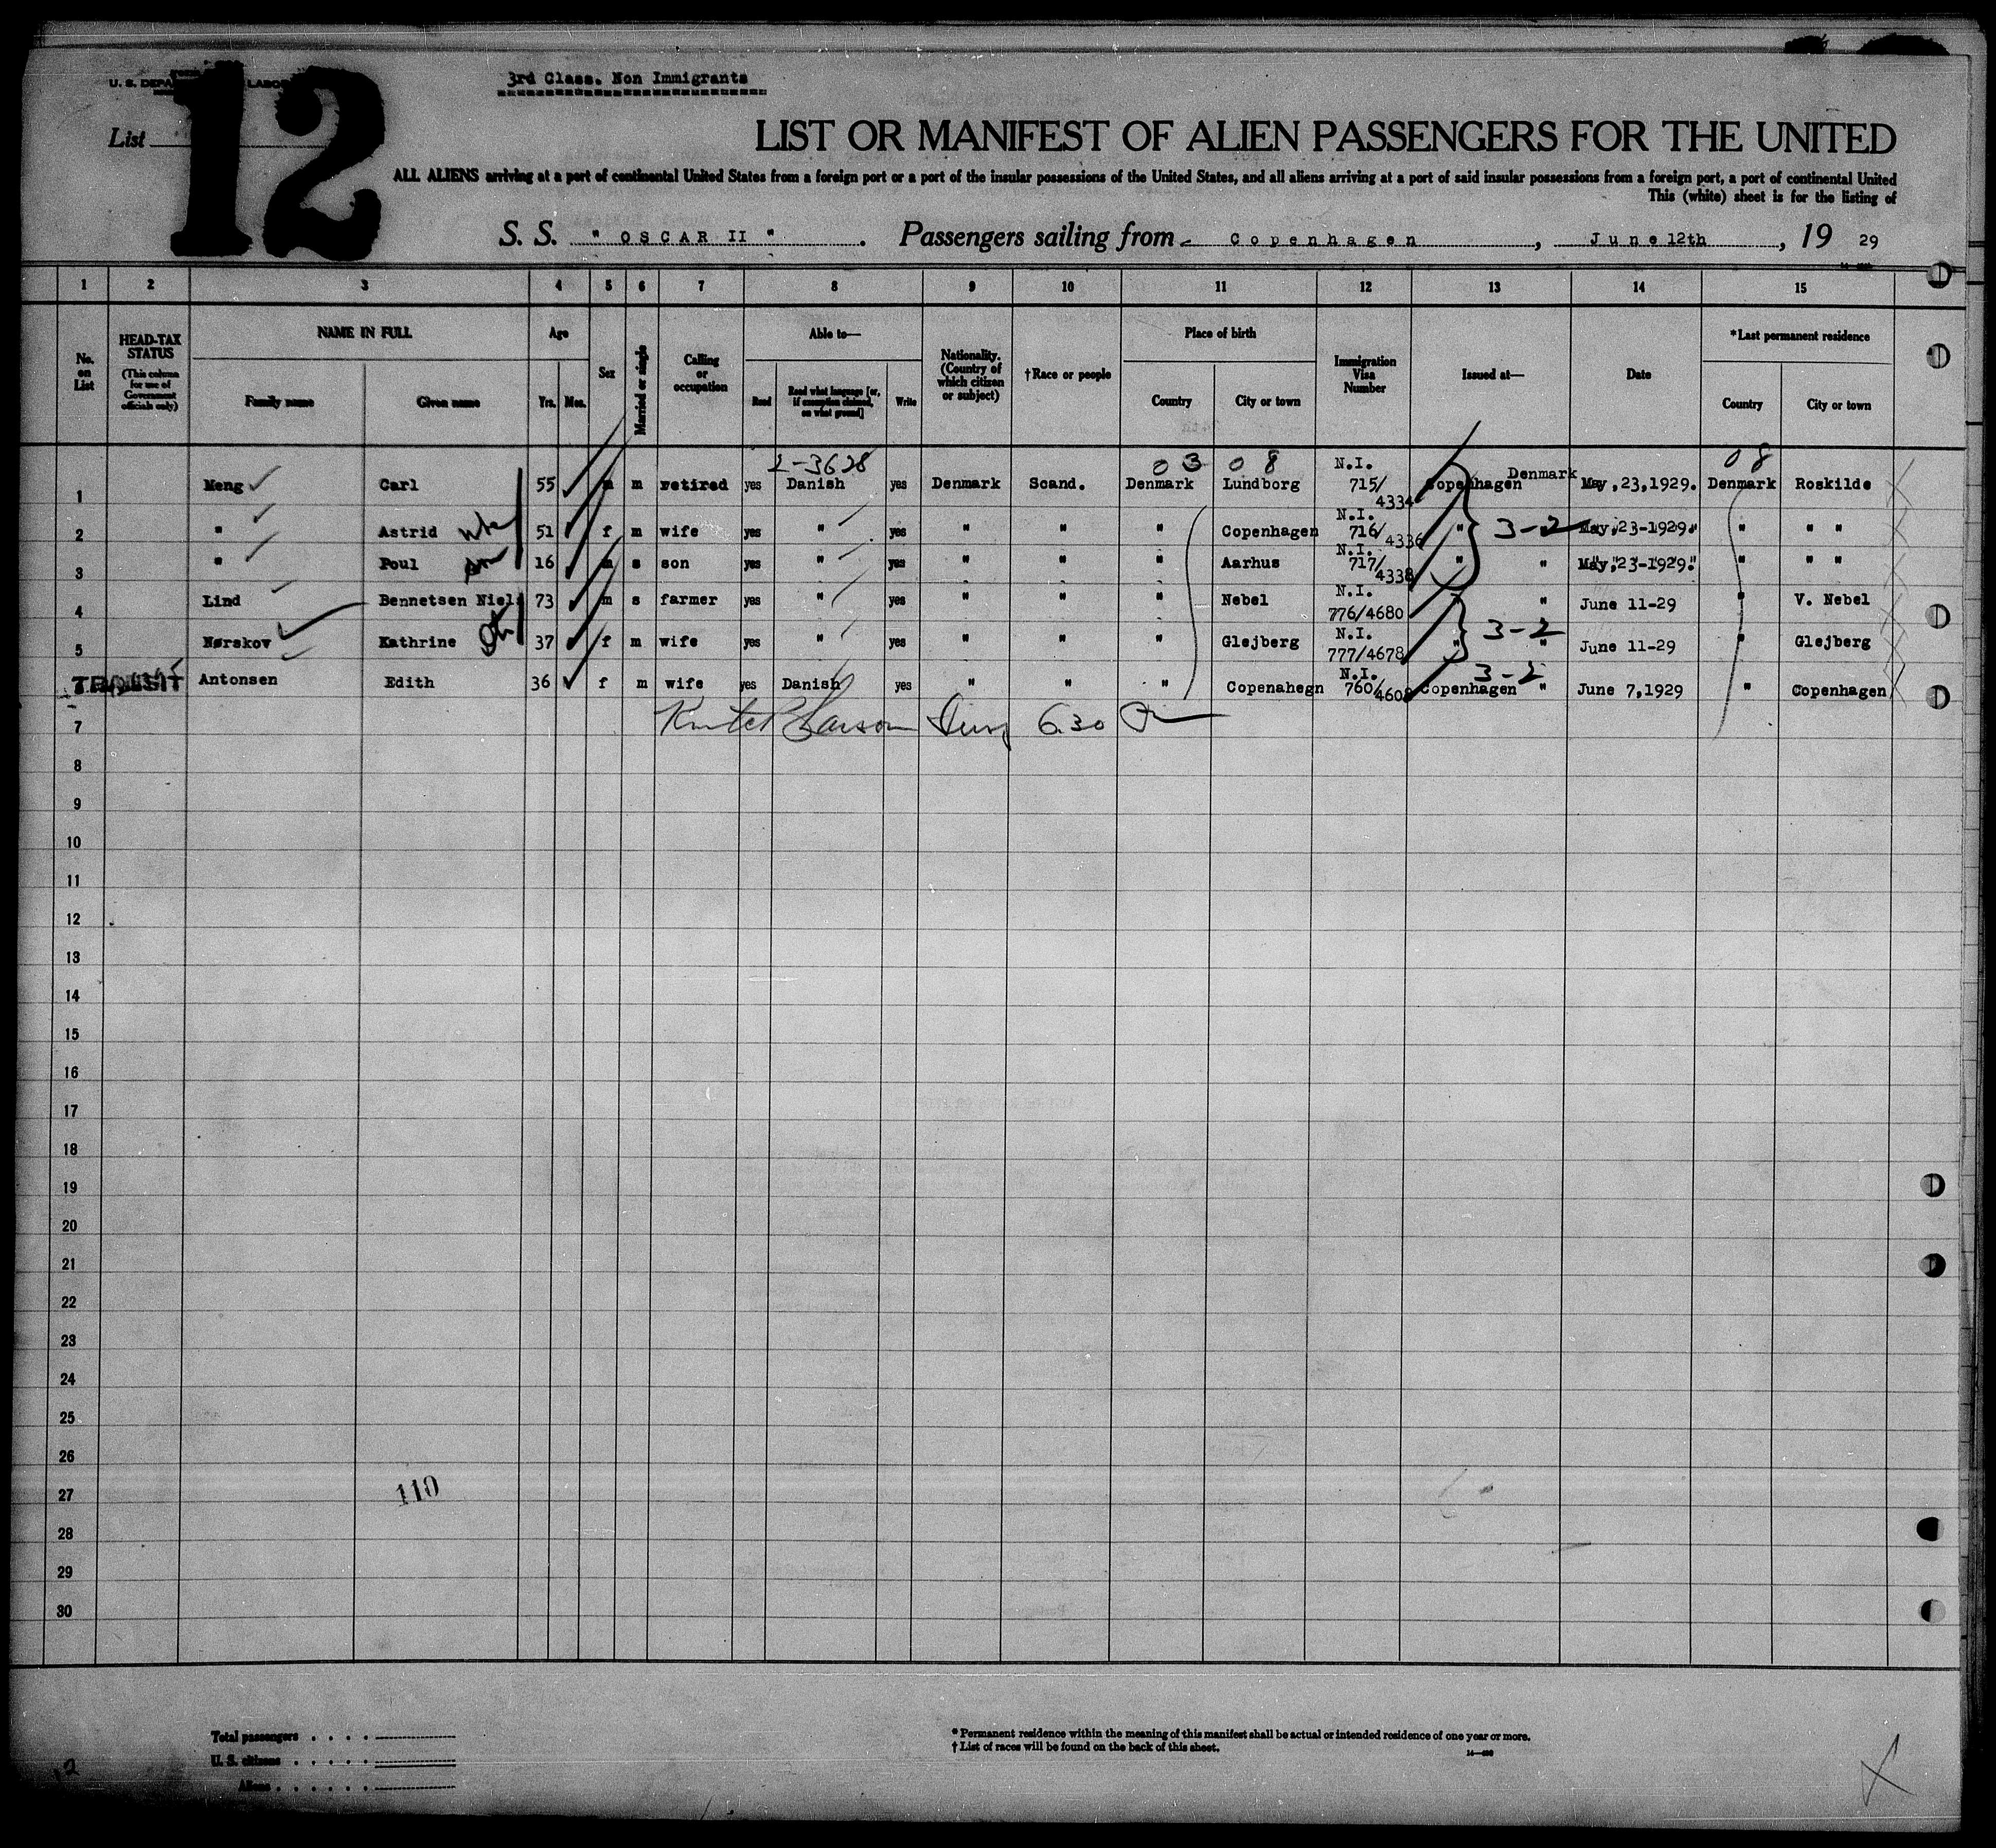 U. S. DEPA LABOR
3rd Class. Non Immigrants
List 12
LIST OR MANIFEST OF ALIEN PASSENGERS FOR THE UNITED
ALL ALIENS arriving at a port of continental United States from a foreign port or a port of the insular possessions of the United States, and all aliens arriving at a port of said insular possessions from a foreign port, a port of continental United
This (white) sheet is for the listing of
S. S. " OSCAR II " . Passengers sailing from Copenhagen , June 12th , 19 29
1 2 3 4 5 6 7 8 9 10 11 12 13 14 15
No. on List
HEAD-TAX STATUS (This column for use of Government officials only)
NAME IN FULL Family name Given name
Age Yrs. Mos.
Sex
Married or single
Calling or occupation
Able to— Read Read what language [or, if exemption claimed, on what ground] Write
Nationality. (Country of which citizen or subject)
†Race or people
Place of birth Country City or town
Immigration Visa Number
Issued at—
Date
*Last permanent residence Country City or town
2-3628 03 08 08
1 Meng Carl 55 m m retired yes Danish yes Denmark Scand. Denmark Lundborg N.I. 715/4334 Copenhagen Denmark May,23,1929. Denmark Roskilde
2 " Astrid 51 f m wife yes " yes " " " Copenhagen N.I. 716/4336 " 3-2 May,23-1929. " " "
3 " Poul 16 m s son yes " yes " " " Aarhus N.I. 717/4338 " " May,23-1929. " " "
4 Lind Bennetsen Niels 73 m s farmer yes " yes " " " Nebel N.I. 776/4680 " " June 11-29 " V. Nebel
5 Nørskov Kathrine 37 f m wife yes " yes " " " Glejberg N.I. 777/4678 " 3-2 " June 11-29 " Glejberg
TRANSIT Antonsen Edith 36 f m wife yes Danish yes " " " Copenahegn N.I. 760/4608 Copenhagen 3-2 " June 7,1929 " Copenhagen
7 Larson 6.30
8
9
10
11
12
13
14
15
16
17
18
19
20
21
22
23
24
25
26
27 110
28
29
30
Total passengers . . . .
U. S. citizens . . . . .
Aliens . . . . . .
* Permanent residence within the meaning of this manifest shall be actual or intended residence of one year or more.
† List of races will be found on the back of this sheet.